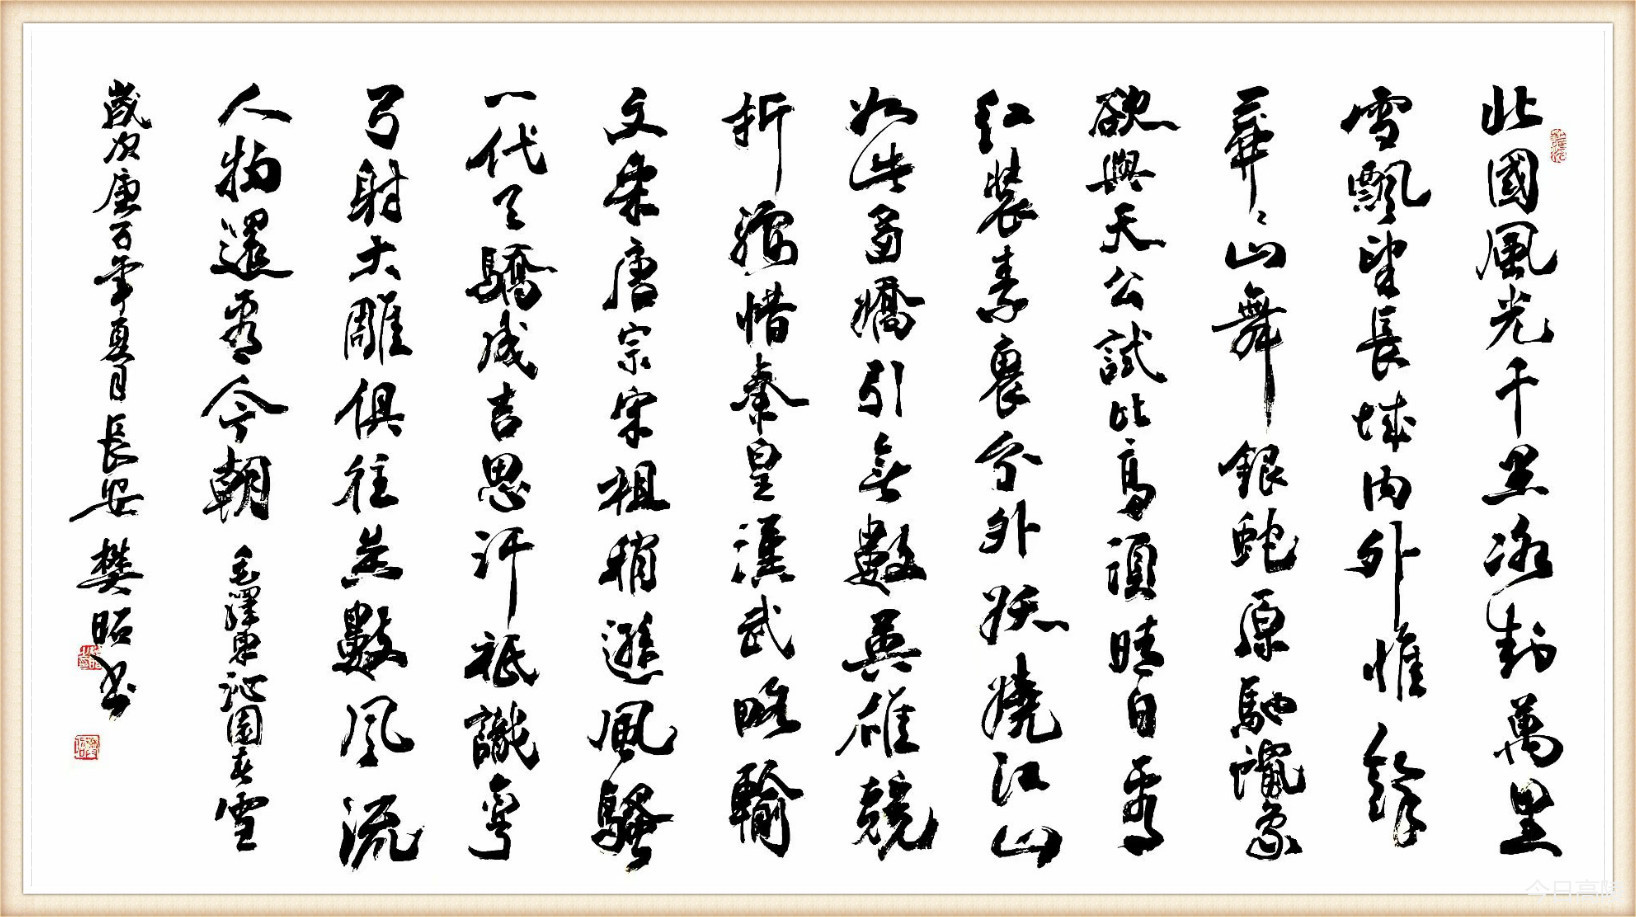 北國風光千里冰封萬里
雪飄望長城內外惟餘
莽〻山舞銀蛇原馳蠟象
欲與天公試比高須晴日看
红裝素裹分外妖嬈江山
如此多嬌引無數英雄競
折腰惜秦皇漢武略輸
文采唐宗宋祖稍遜風騷
一代天驕成吉思汗祇識彎
弓射大雕俱往矣數風流
人物還看今朝 毛澤東沁園春雪
歲次庚子年夏月長安樊昭书
今日高陵